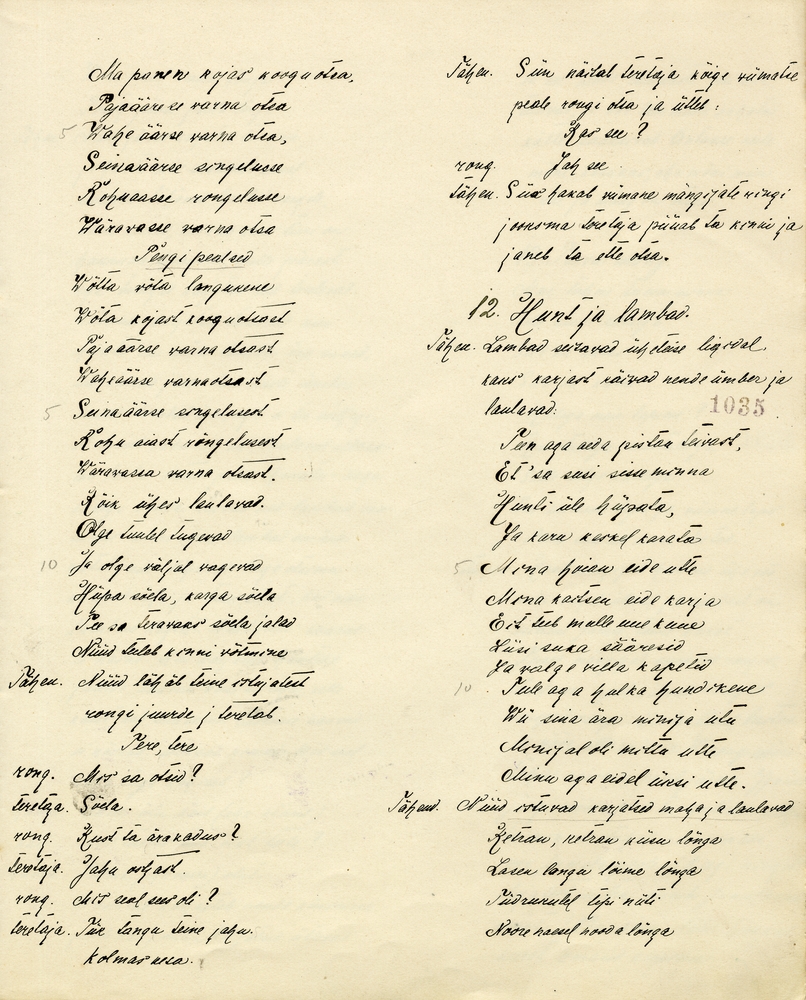 Ma panen kojas koogu otsa,
Pajaäärse varna otsa
5 Wahe äärse varna otsa,
Seinaäärse singelusse
Rohuaasse rongelusse
Wäravasse varna otsa
Pengi pealsed
Wõtta võta langukene
Wõta kojast kooguotsast
Pajaäärse varna otsast
Waheäärse varnaotsast
5 Seinaäärse singelusest
Rohu aiast röngelusest
Wäravassa varna otsast.
Kõik ühes laulavad.
Olge tuulel tugevad
10 Ja olge väljal vagevad
Hüpa sõela, karga sõela
Tee sa teravaks sõela jalad
Nüüd tuleb kinni võtmine
Tähen. Nüüd läheb teine istujatest
rongi juurde j teretab.
Tere, tere
rong. Mis sa otsid?
teretaja. Sõela.
rong. Kust ta ära kadus?
teretaja. Jahu ostjast.
rong. Mis seal sees oli?
teretaja. Üks tangu teine jahu.
kolmas
Tähen. Siin näitab teretaja kõige viimatse
peale rongi otsa ja ütleb:
Kas see?
rong. Jah see.
Tähen. Siis hakab viimane mängijate ringi
jooksma teretaja püüab ta kinni ja
janeb ta ette otsa.
12. Hunt ja lambad.
Tähen. Lambad seisavad üheteise ligidal
kaks karjast käivad nende ümber ja
laulavad:
1035
Teen aga aeda pistan teivast,
Et 'sa susi sisse minna
Hunti üle hüpata,
Ja karu keskel karata
5 Mina hoian eide utte
Mina kaitsen eide karja
Eit teeb mulle uue kuue
Siisi suka sääresid
Ja valge villa kapetid
10 Tule aga hulka hundikene
Wii sina ära minija utu
Minijal oli mittu utte
Minu aga eidel üksi utte.
Tähend. Nüüd istuvad karjatsed maha ja laulavad
Ketran, kotran kuue lõnga
Lasen langu lõime lõnga
Tüdrukutel tipi niiti
Noore naesel nooda lõnga